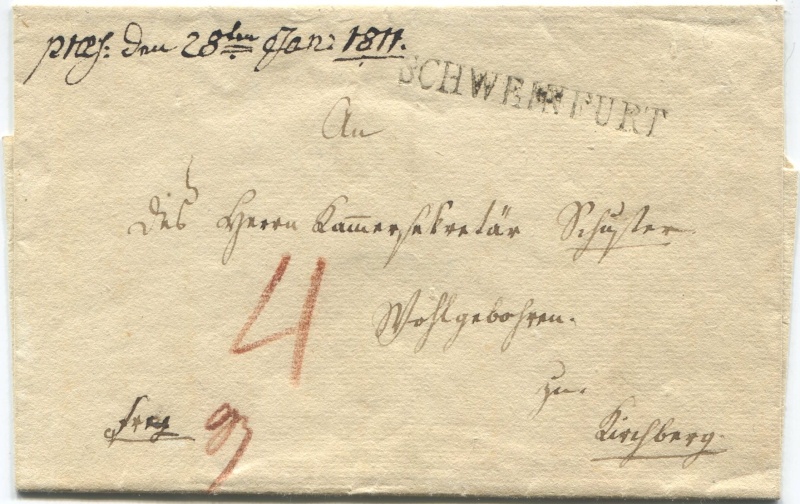 præs: den 28ten Jan: 1811.
SCHWEINFURT
An
des Herrn Kammersekretär Schuster
Wohlgebohren.
4
zu
frey
Kirchberg